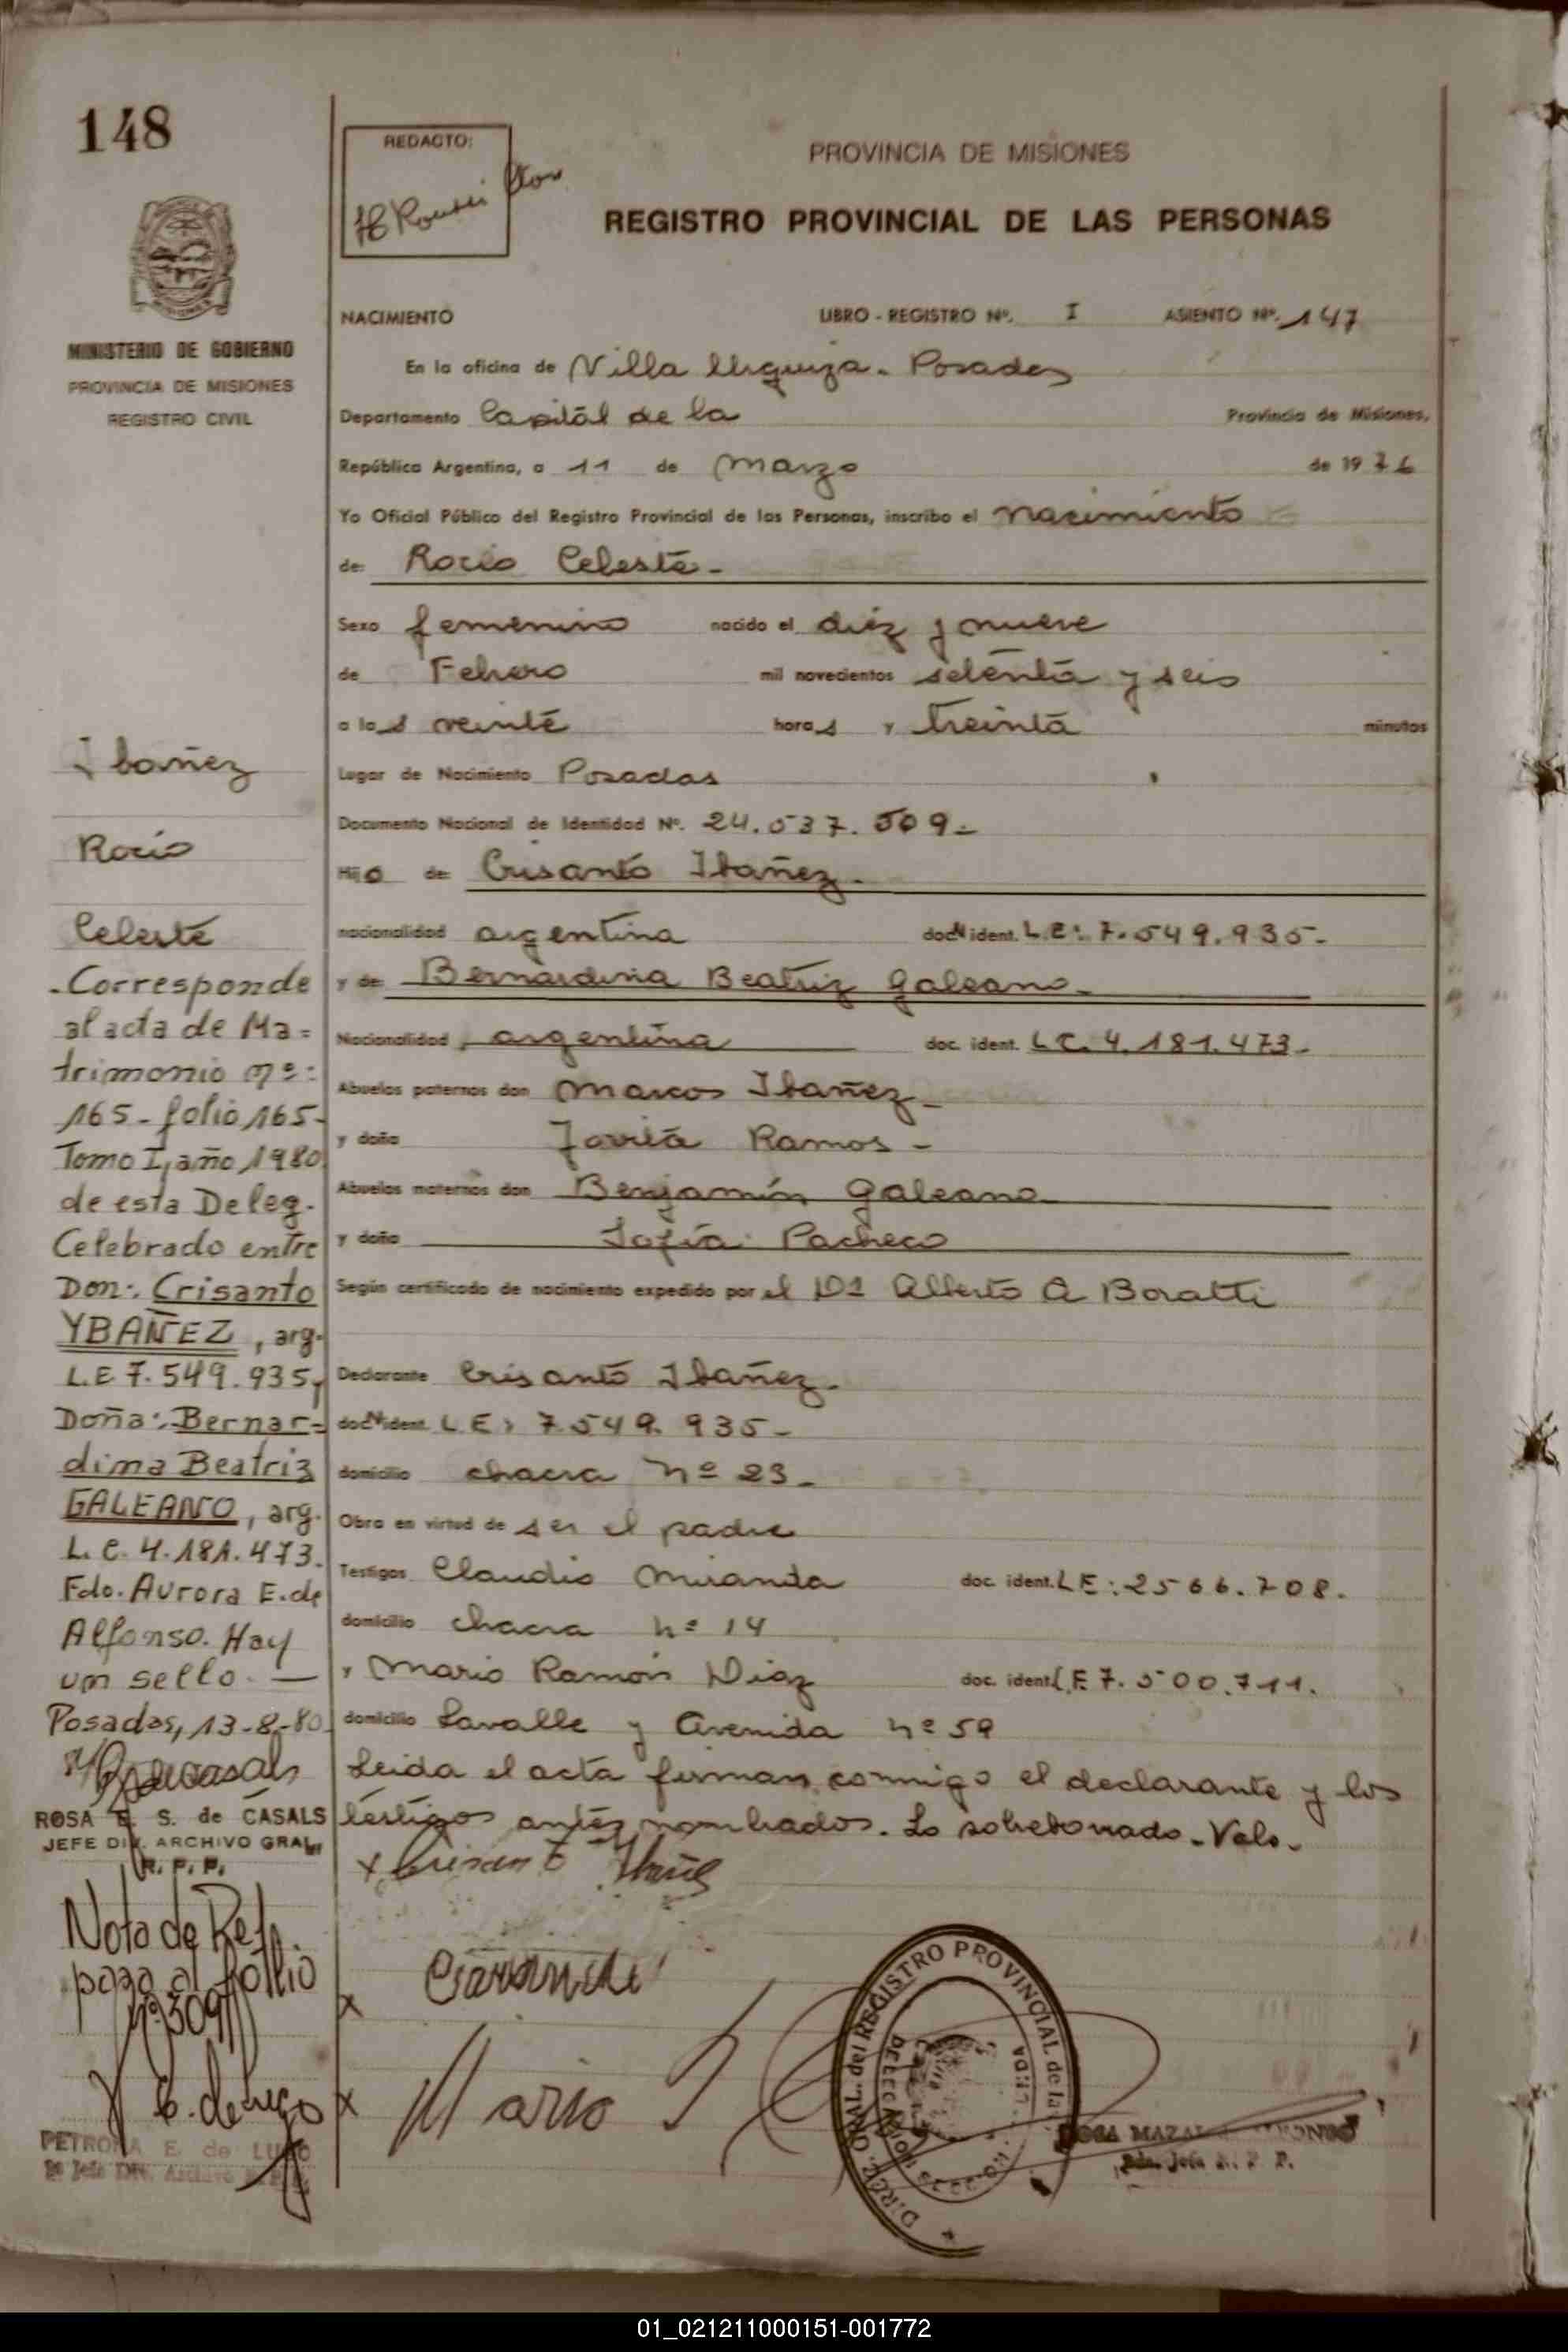 148
REDACTO:
PROVINCIA DE MISIONES
REGISTRO PROVINCIAL DE LAS PERSONAS
MINISTERIO DE GOBIERNO
PROVINCIA DE MISIONES
REGISTRO CIVIL
NACIMIENTO LIBRO - REGISTRO Nº. I ASIENTO Nº. 147
En la oficina de Villa Urquiza. Posadas
Departamento Capital de la Provincia de Misiones.
República Argentina, a 11 de Marzo de 1976
Yo Oficial Público del Registro Provincial de las Personas, inscribo el Nacimiento
de: Rocio Celeste -
Sexo femenino nacido el diez y nueve
de Febrero mil novecientos setenta y seis
a las veinte horas y treinta minutos
Lugar de Nacimiento Posadas
Documento Nacional de Identidad Nº. 24.537.509.-
Hija de: Crisanto Ibañez.
nacionalidad argentina docN ident. L.E: 7.549.935-
y de: Bernardina Beatriz Galeano-
Nacionalidad argentina doc. ident. L.C. 4.181.473-
Abuelos paternos don Marcos Ibañez-
y doña Jovita Ramos -
Abuelos maternos don Benjamín Galeano
y doña Sofía Pacheco
Según certificado de nacimiento expedido por el Dr Alberto A Boratti
Declarante Crisanto Ibañez.
docN ident. L.E: 7.549.935-
domicilio chacra nº 23-
Obra en virtud de ser el padre
Testigos Claudio Miranda doc. ident. LE: 2566.708.
domicilio chacra nº 14
y Mario Ramón Diaz doc. ident. L.E. 7.500.711.
domicilio Lavalle y Avenida nº 59
Leida el acta firman conmigo el declarante y los
testigos antes nombrados. Lo sobreborrado-Vale-
x Crisanto Ibañez
x
x Mario
Ibañez
Rocio
Celeste
-Corresponde
al acta de Ma=
trimonio nº:
165-folio 165-
Tomo I, año 1980
de esta Deleg.
Celebrado entre
Don: Crisanto
YBAÑEZ, arg.
L.E 7.549.935,
Doña: Bernar=
dina Beatriz
GALEANO, arg.
L.C. 4.181.473.
Fdo. Aurora E. de
Alfonso. Hay
un sello. —
Posadas, 13-8-80
ROSA E. S. de CASALS
JEFE DIV. ARCHIVO GRAL.
R. P. P.
Nota de Ref.
pasa al follio
nº 309
PETRONA E. de LUGO
DIREC. GRAL. del REGISTRO PROVINCIAL de las
ROSA
01_021211000151-001772